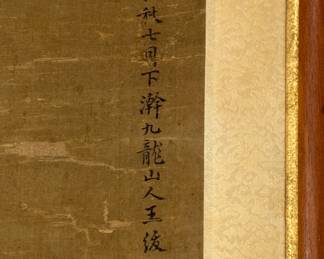 秋七月下澣九龍山人王紱